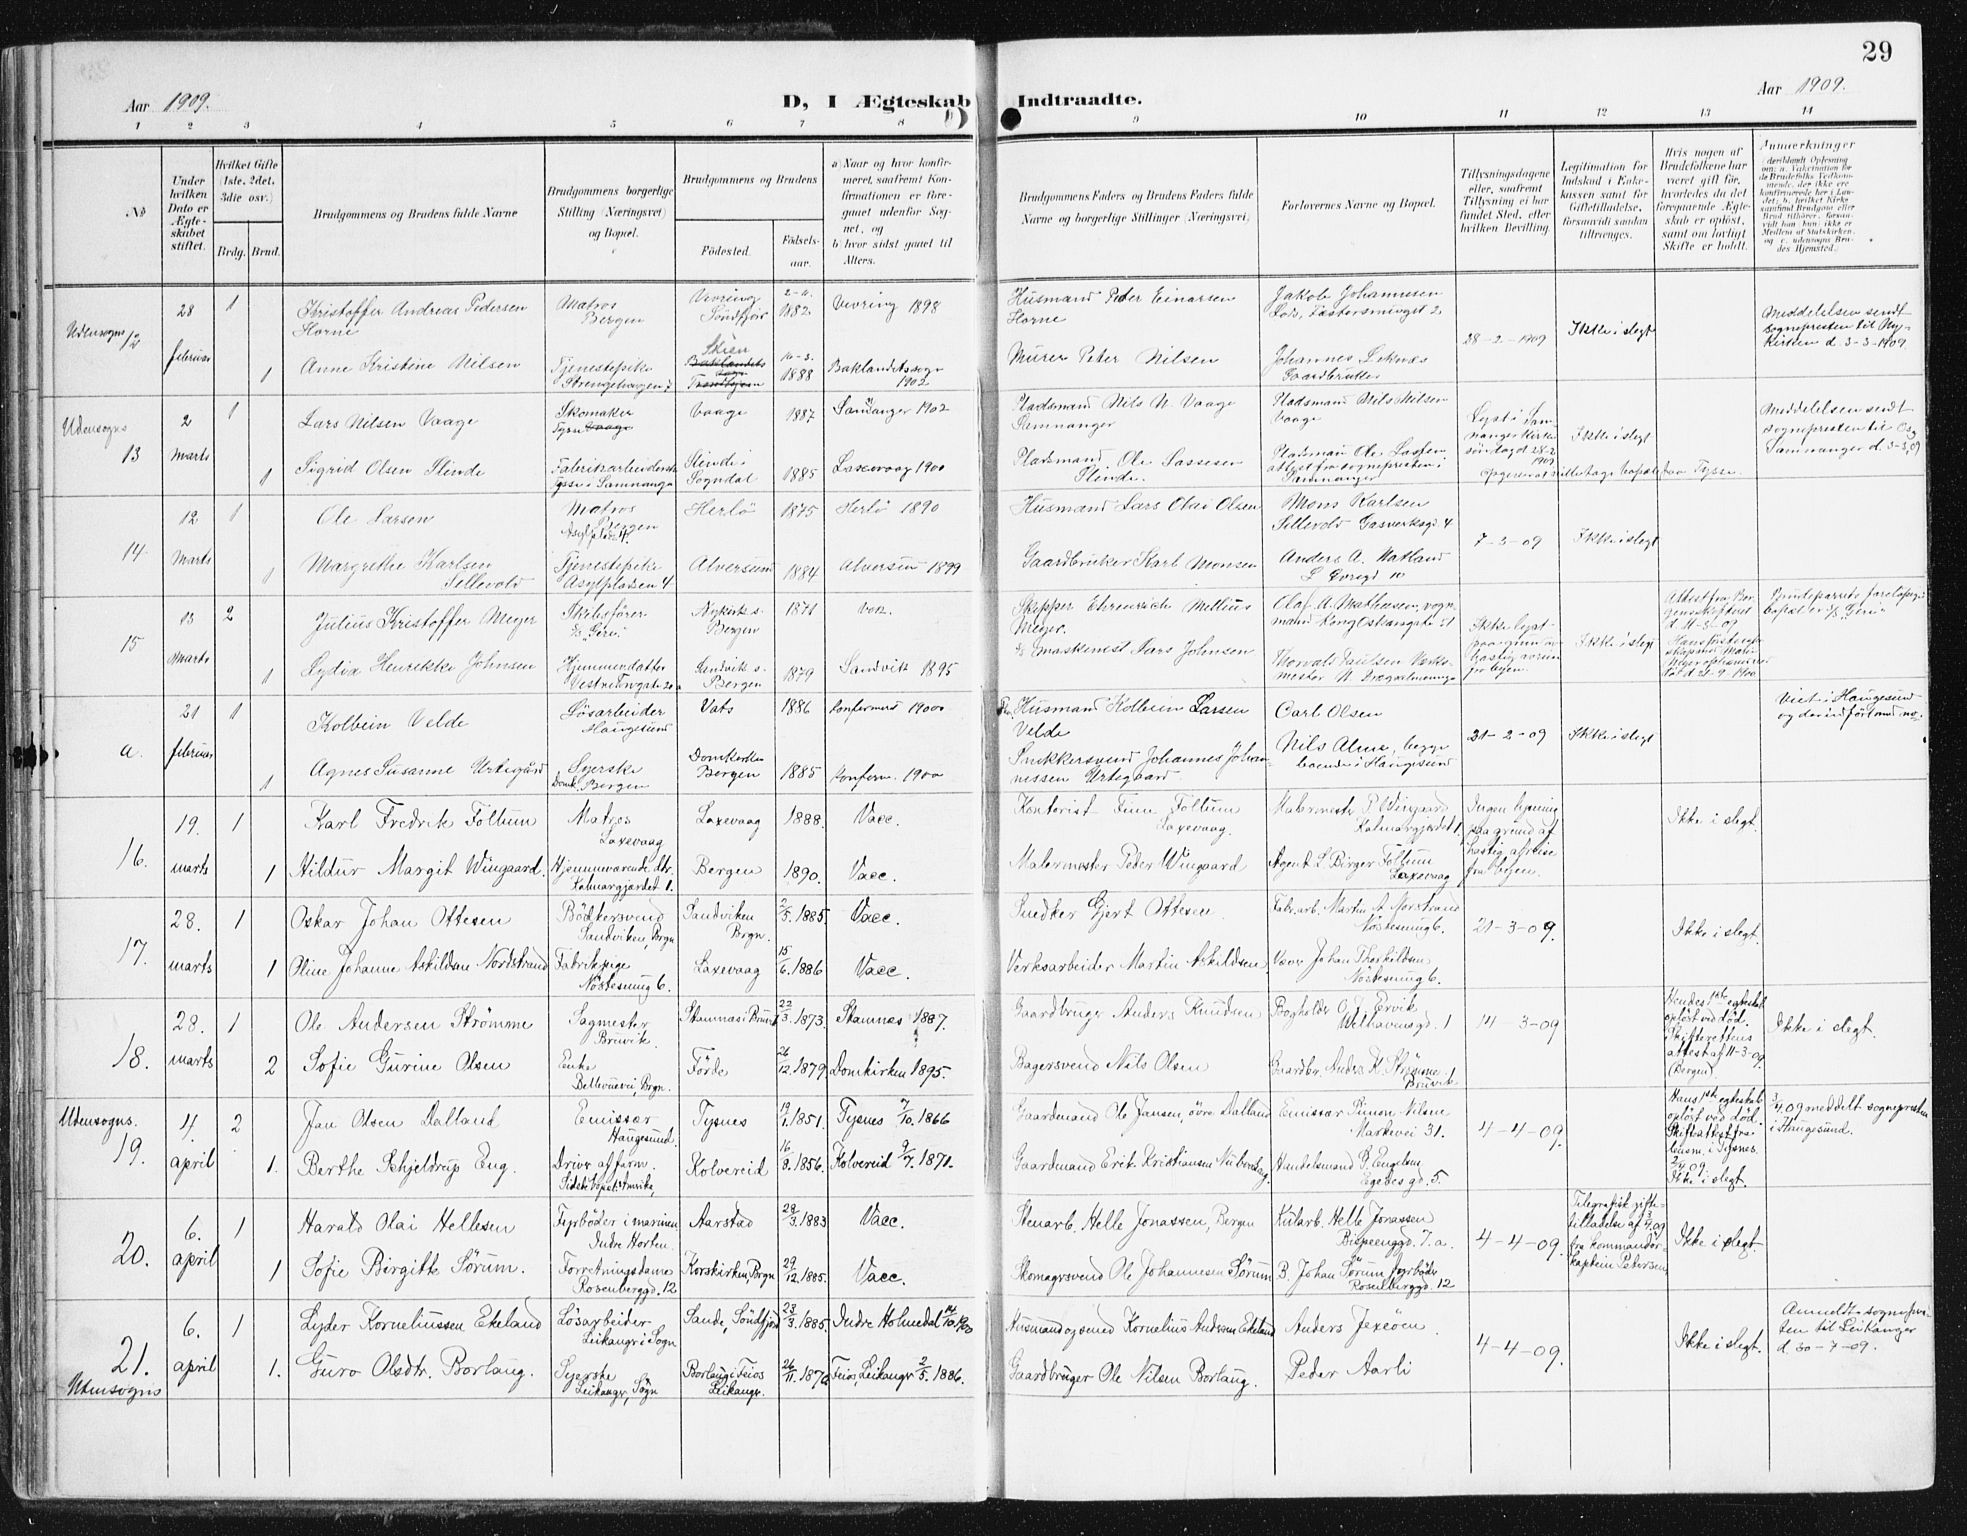 29
Aar 1909.
D, I Ægteskab Indtraadte.
Aar 1909.
1 2 3 4 5 6 7 8 9 10 11 12 13 14
No
Under hvilken Dato er Ægteskabet stiftet.
Hvilket Gifte (1ste, 2det, 3die osv.)
Brdg. Brud.
Brudgommens og Brudens fulde Navne
Brudgommens borgerlige Stilling (Næringsvei) og Bopæl.
Brudgommens og Brudens
Födested.
Födselsaar.
a) Naar og hvor konfirmeret, saafremt Konfirmationen er foregaaet udenfor Sognet, og
b) hvor sidst gaaet til Alters.
Brudgommens Faders og Brudens Faders fulde Navne og borgerlige Stillinger (Næringsvei).
Forlovernes Navne og Bopæl.
Tillysningsdagene eller, saafremt Tillysning ei har fundet Sted, efter hvilken Bevilling.
Legitimation for Indskud i Enkekassen samt for Giftetilladelse, forsaavidt saadan tiltrænges.
Hvis nogen af Brudefolkene har været gift før, hvorledes da det foregaaende Ægteskab er opløst, samt om lovligt Skifte er holdt.
Anmærkninger
Udensogns 12
28 februar
1
Kristoffer Andreas Pedersen Horne
Matros Bergen
Vevring Söndfjor
2-11 1882
Vevring 1898
Husmand Peter Einarsen Horne
Jakob Johannesen
28-2-1909
Ikke i slegt
Meddelelsen sendt sognepresten til Nykirken d. 3-3-1909.
1
Anne Kristine Nilsen
Tjenestepike Strengehagen 7
Skien
10-3. 1888
Baklandets sogn 1902
Murer Peter Nilsen
Johannes
Gaardbruker
Udensogns 13
2 marts
1
Lars Nilsen Vaage
Skomaker Tysse
Vaage
1887
Samnanger 1902
Pladsmand Nils N. Vaage Samnanger
Pladsmand Nils Nilsen Vaage
Lyst i Samnanger kirke söndag d 28-2 1909
Ikke i slegt
Meddelelsen sendt sognepresten til Os, Samnanger d. 3-3,09
1
Sigrid Olsen Slinde
Fabrikarbeiderske Tysse i Samnanger
Slinde i Sogndal
1885
Laxevaag 1900
Pladsmand Ole Lassesen Slinde.
Pladsman Ole Lassen, attest fra sognepresten i Samnanger
14
12 Marts
1
Ole Larsen
Matros Bergen
Herlö
1875
Herlö 1890
Husmand Lars Olai Olsen
Mons Karlsen Sellevold Gasverksgd 4
7-3-09
Ikke i slegt
1
Margrethe Karlsen Sellevold
Tjenestepike Asylpladsen 4
Alversund
1884
Alversund 1899
Gaardbruker Karl Monsen
Anders A. Natland
15
13 Marts
2
Julius Kristoffer Meyer
Skibsförer S/S "Geru"
Nykirk s. Bergen
1871
Skipper Ehrenreich Mettius Meyer.
Olaf A. Mathiesen, vognmand Kong Oskarsgate 51
Ikke lyst paa grund av hastig avreise fra byen.
Ikke i slegt
Attest fra Bergens skifteret d. 11-3-09
Brudeparrets foreløpige bopæl er S/S "Geru"
1
Lydia Henrikke Johnsen
Hjemmedatter
Sandvik s. Bergen
1879
Sandvik 1895
Lars Johnsen
Thorvald Paulsen Verksmester
a.
21 februar
1
Kolbein Velde
Lösarbeider Haugesund
Vats
1886
Konfermert 1900
Husmand Kolbein Larsen Velde
Carl Olsen
21-2-09
Ikke i slegt
Viet i Haugesund og der indfört med no.
1
Agnes Susanne Urtegård
Syerske Domk. Bergen
Domkirken Bergen
1885
Konferm. 1900
Snikkersvend Johannes Johannessen Urtegaard
Nils Alme, begge boende i Haugesund
16.
19. marts
1
Karl Fredrik Föltum
Matros Laxevaag
Laxevaag
1888.
Vacc.
Kontorist Finn Föltum Laxevaag.
Malermester P. Wingaard Kalmargjerdet 1.
Ingen lysning paa grund af hastig afreise fra byen.
Ikke i slegt.
1
Hildur Margit Wingaard.
Hjemmeværende dtr. Kalmargjerdet 1.
Bergen
1890.
Vacc.
Malermester Peder Wingaard
Agent L. Birger Föltum Laxevaag
17.
28. marts
1
Oskar Johan Ottesen
Bödkersvend Sandviken, Brgn
Sandviken Brgn.
2/5. 1885
Vacc.
Snedker Gjert Ottesen
Fabr.arb. Martin A. Norstrand Nöstesmug 6.
21-3-09.
Ikke i slegt.
1
Oline Johanne Askildsen Nordstrand
Fabrikpige Nöstesmug 6.
Laxevaag
15/6. 1886
Vacc.
Verksarbeider Martin Askildsen
Væver Johan Thorkildsen Nöstesmug 6.
18.
28. marts
1
Ole Andersen Strömme
Sagmester Bruvik.
Stamnes i Bruvik
22/3. 1873.
Stamnes 1887.
Gaardbruger Anders Knudsen
Bogholder O. J. Ervik Welhavensgd. 1
14-3-09
Hendes 1ste egteskab oplöst ved död. Skifterettens attest af 11-3-09. (Bergen)
Ikke i slegt.
2
Sofie Gurine Olsen
Enke Bellevuevei, Brgn.
Förde
26/12. 1879
Domkirken 1895.
Bagersvend Nils Olsen
Gaardbr. Anders K. Strömme Bruvik
Udensogns. 19.
4. april
2
Jan Olsen Dalland
Emissær Haugesund.
Tysnes
19/1. 1851.
Tysnes 7/10. 1866
Gaardmand Ole Jansen, övre Dalland
Emissær Simon Nilsen Markevei 31.
4-4-09.
Hans 1ste egteskab oplöst ved död. Skifteattest fra lensm. i Tysnes. 2/4 09. Ikke i slegt.
3/4 09 meddelt sognepresten i Haugesund.
1.
Berthe Schjeldrup Eng.
Driver af farm. Sidste bopæl: Amerika,
Kolvereid
16/8. 1856.
Kolvereid 9/7. 1871.
Gaardmand Erik Kristiansen
Handelsmand P. Engelsen Egedesgd. 5.
20.
6. april
1
Harald Olai Hellesen
Fyrböder i marinen Indre Horten.
Aarstad
29/3. 1883
Vacc.
Stenarb. Helle Jonassen, Bergen
Kularb. Helle Jonassen Bispeenggd. 7.a.
4-4-09.
Telegrafisk giftetilladelse af 3/4 09 fra Kommandörkaptein Petersen,
Ikke i slegt.
1
Sofie Birgitte Sörum.
Forretningsdame Rosenberggd. 12
Korskirken, Brgn
29/12. 1885.
Vacc.
Skomagrsvend Ole Johannesen Sörum
B. Johan Sörum, fyrböder Rosenberggd. 12
21. Udensogns
6. april
1
Lyder Korneliussen Ekeland
Lösarbeider Leikangr i Sogn
Sande, Söndfjord
23/3. 1885.
Indre Holmedal 14/10. 1900
Husmand og smed Kornelius Andersen Ekeland
Anders Jexöen.
4-4-09.
Ikke i slegt.
Anmeldt sognepresten til Leikanger d 30-7-09.
1.
Guro Olsdtr. Borlaug.
Syerske Leikangr, Sogn
Borlaug i Feios Leikangr.
26/11. 1870
Feios, Leikangr 2/5. 1886.
Gaardbruger Ole Nilsen Borlaug.
Peder Aarli